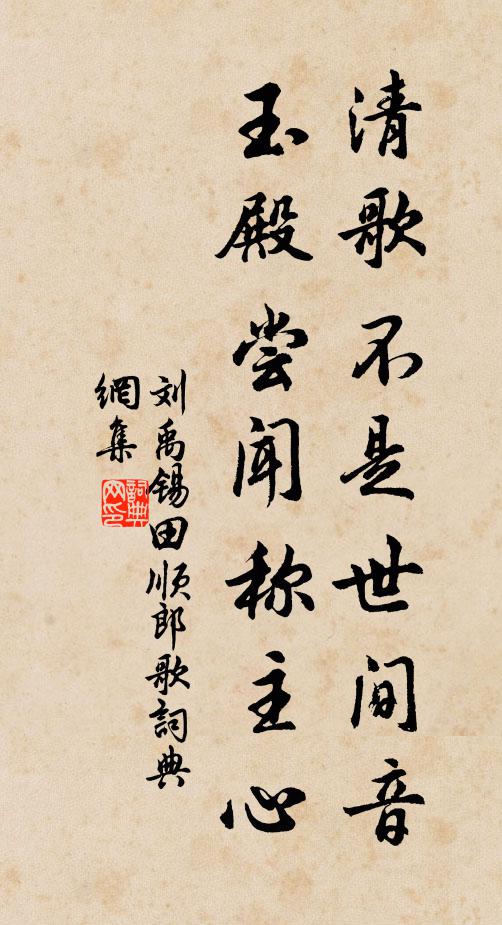 清歌不是世间音
玉殿尝闻称主心
刘禹锡田顺郎歌詞典
網集
詞典
网印